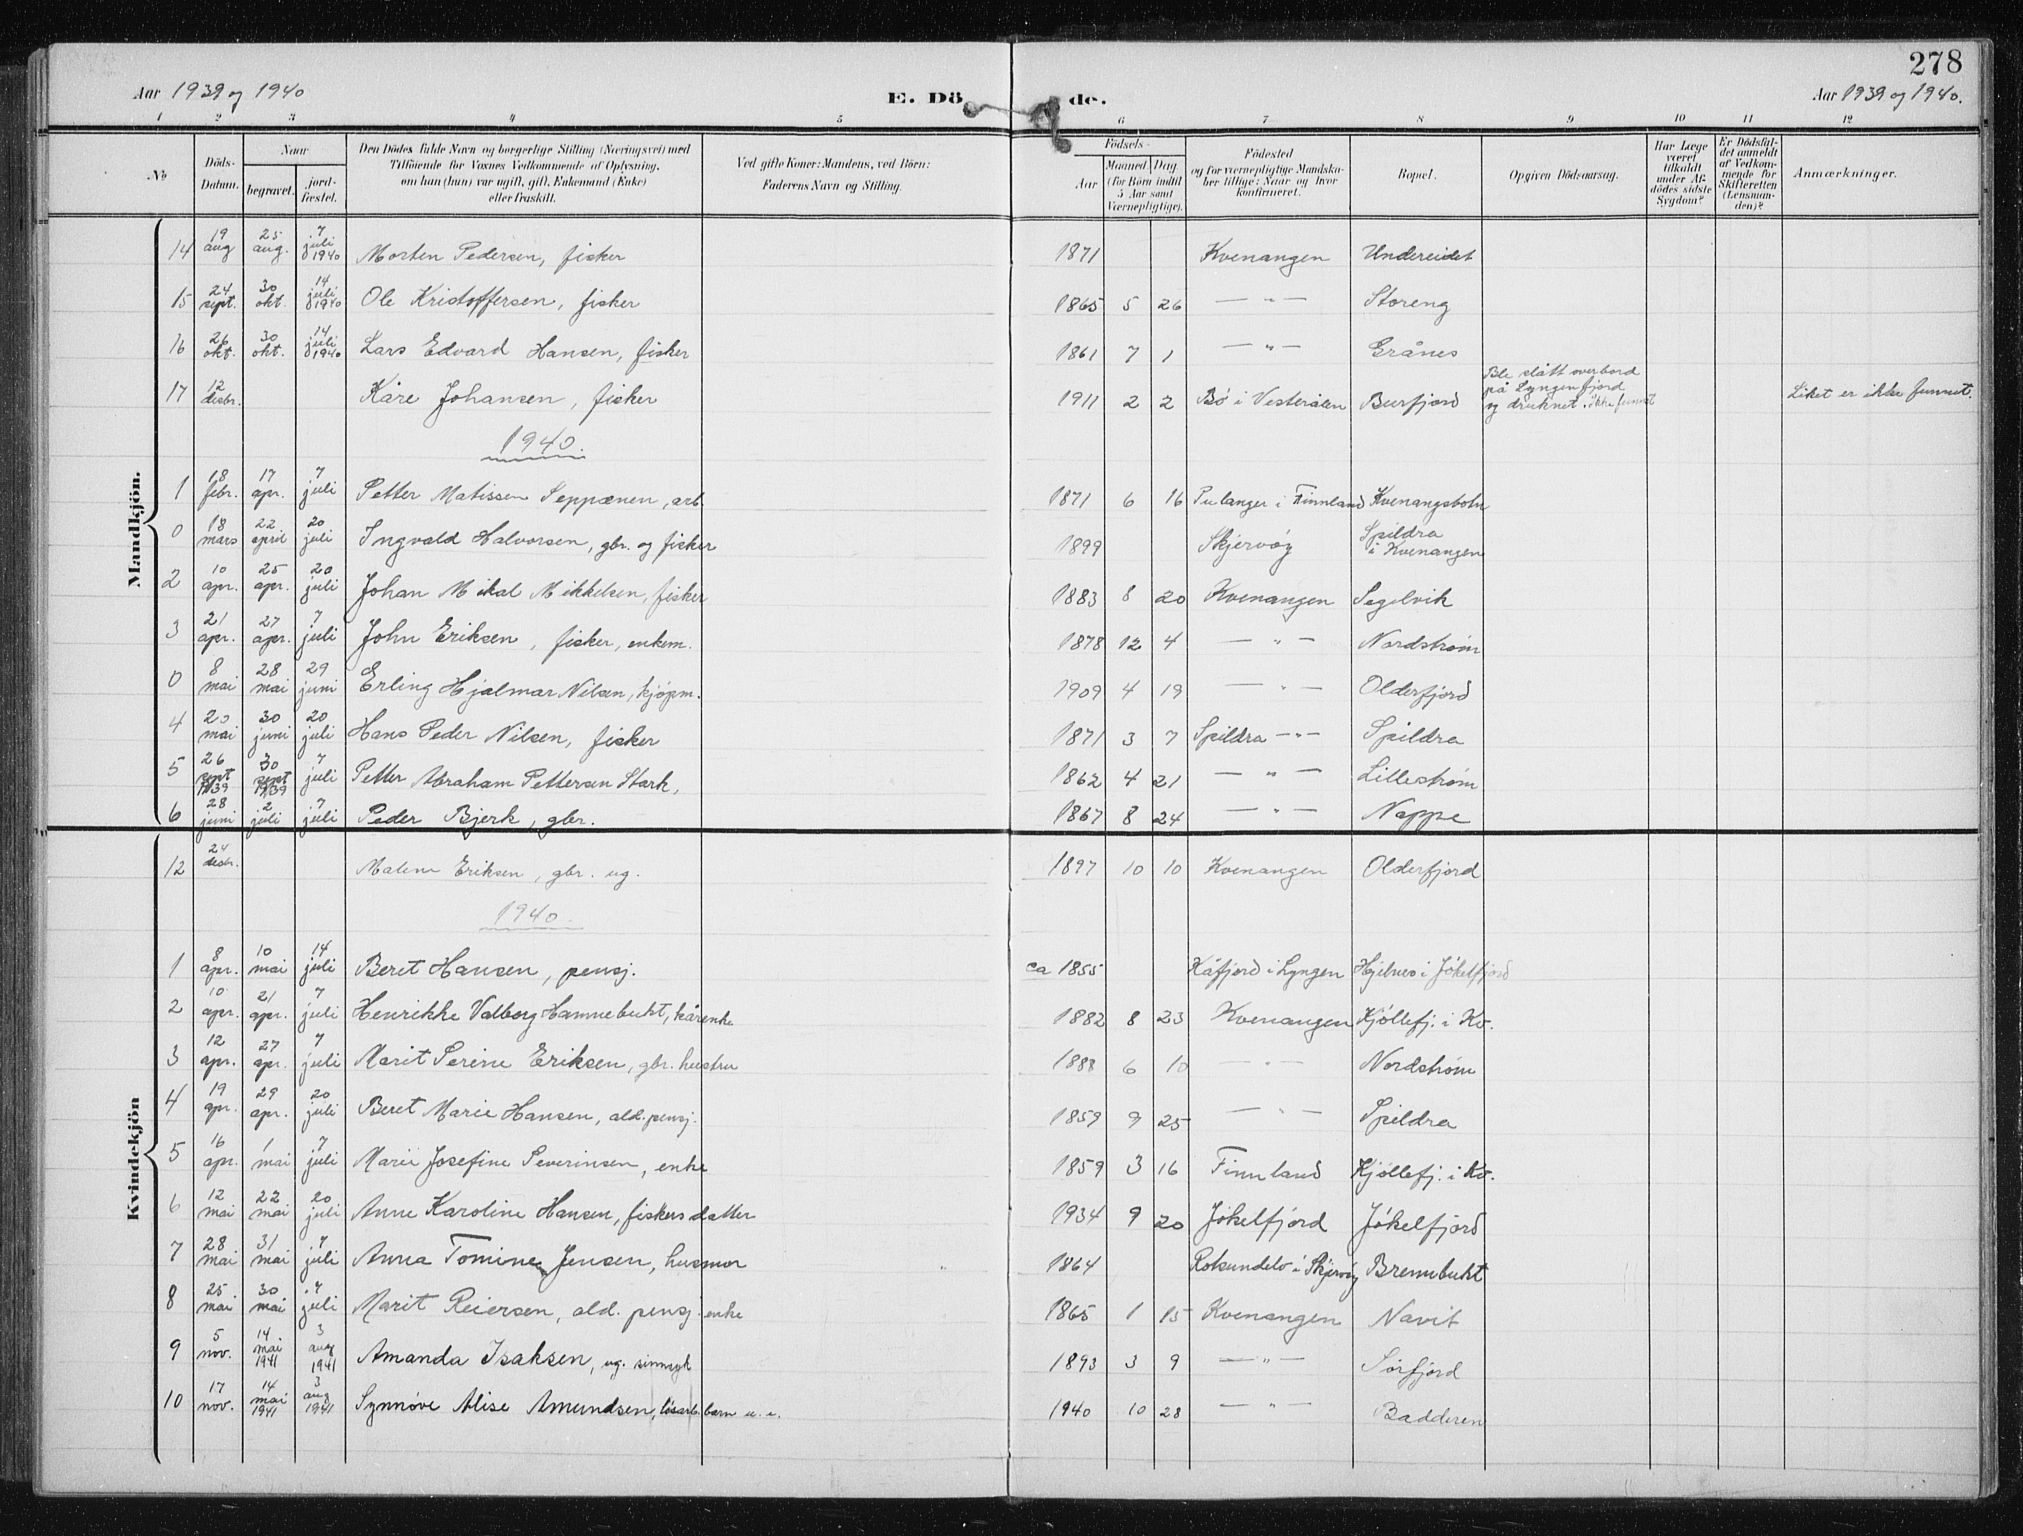 278
Aar 1939 og 1940
E. Dö de.
Aar 1939 og 1940.
1 2 3 4 5 6 7 8 9 10 11 12
No
Döds-Datum.
Naar
begravet.
jord-fæstet.
Den Dödes fulde Navn og borgerlige Stilling (Næringsvei) med
Tilföiende for Voxnes Vedkommende af Oplysning,
om han (hun) var ugift, gift, Enkemand (Enke)
eller fraskilt.
Ved gifte Koner: Mandens, ved Börn:
Faderens Navn og Stilling.
Födsels-
Aar
Maaned Dag
(for Börn indtil
5 Aar samt
Værnepligtige).
Födested
og for værnepligtige Mandskaber tillige: Naar og hvor
konfirmeret.
Bopæl.
Opgiven Dödsaarsag.
Har Læge
været
tilkaldt
under Afdödes sidste
Sygdom?
Er Dödsfaldet anmeldt
af Vedkommende for
Skifteretten
(Lensmanden)?
Anmærkninger.
Mandkjön.
14 19 aug 25 aug. 7 juli 1940 Morten Pedersen, fisker 1871 Kvenangen Undereidet
15 24 sept. 30 okt. 14 juli 1940 Ole Kristoffersen, fisker 1865 5 26 — " — Storeng
16 26 okt. 30 okt. 14 juli 1940 Lars Edvard Hansen, fisker 1861 7 1 — " — Grånes
17 12 desbr. Kåre Johansen, fisker 1911 2 2 Bø i Vesterålen Burfjord Ble slått overbord på Lyngenfjord og druknet. ikke funnet Liket er ikke funnet.
1940.
1 18 febr. 17 apr. 7 juli Petter Matissen Seppænen, arb. 1871 6 16 Pulanger i Finnland Kvenangsbotn
0 18 mars 22 april 20 juli Ingvald Halvorsen, gbr. og fisker 1899 Skjervøy Spildra i Kvenangen
2 10 apr. 25 apr. 20 juli Johan Mikal Mikkelsen, fisker 1883 8 20 Kvenangen Segelvik
3 21 apr. 27 apr. 7 juli John Eriksen, fisker, enkem. 1878 12 4 — " — Nordstrøm
0 8 mai 28 mai 29 juni Erling Hjalmar Nilsen, kjøpm. 1909 4 19 — " — Olderfjord
4 20 mai 30 juni 20 juli Hans Peder Nilsen, fisker 1871 3 7 Spildra — " — Spildra
5 26 sept 1939 30 sept 1939 7 juli Petter Abraham Pettersen Stark, 1862 4 21 — " — Lillestrøm
6 28 juni 2 juli 7 juli Peder Bjerk, gbr. 1867 8 24 — " — Nappe
Kvindekjön
12 24 desbr. Malene Eriksen, gbr. ug. 1897 10 10 Kvenangen Olderfjord
1940.
1 8 apr. 10 mai 14 juli Beret Hansen, pensj. ca 1855 Kåfjord i Lyngen Hjelnes i Jøkelfjord
2 10 apr. 21 apr. 7 juli Henrikke Valborg Hamnebukt, kårenke 1882 8 23 Kvenangen Kjøllefj. i Kv.
3 12 apr. 27 apr. 7 juli Marit Serine Eriksen, gbr. hustru 1888 6 10 — " — Nordstrøm
4 19 apr. 29 apr. 20 juli Beret Marie Hansen, ald. pensj. 1859 9 25 — " — Spildra
5 16 apr. 1 mai 7 juli Marie Josefine Severinsen, enke 1859 3 16 Finnland Kjøllefj. i Kv.
6 12 mai 22 mai 20 juli Anne Karoline Hansen, fiskersdatter 1934 9 20 Jøkelfjord Jøkelfjord
7 28 mai 31 mai 7 juli Anna Tomine Jensen, husmor 1864 Rotsundelv i Skjervøy Brennbukt
8 25 mai 30 mai 7 juli Marit Reiersen, ald. pensj. enke 1865 1 15 Kvenangen Navit
9 5 nov. 14 mai 1941 3 aug 1941 Amanda Isaksen, ug. sinnsyk 1893 3 9 — " — Sørfjord
10 17 nov. 14 mai 1941 3 aug 1941 Synnøve Alise Amundsen, løsarb. barn u. e. 1940 10 28 — " — Badderen